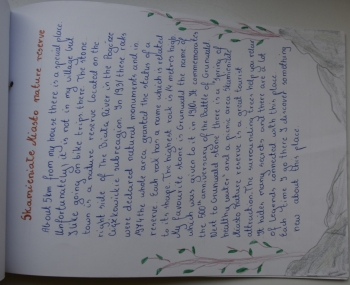 Skamieniałe Miasto nature reserve
About 5km from my house there is a great place
Unfortunately it is not in my village but
I like going on bike trips there. The stone
town is a nature reserve located on the
right side of the Biała River in the Pogórze
Ciężkowickie subregion. In 1931 these rocks
were declared natural monuments and in
1974 the whole area granted the status of a
reserve. Each rock has a name which is related
to its shape. The biggest rock is 14 metres high
My favourite stone is Grunwald, the name of
which was given to it in 1910. It commemorates
the 500th anniversary of the Battle of Grunwald
Next to Grunwald stone, there is a "Spring of
healthy water" and a picnic area. Skamieniałe
Miasto nature reserve is a great tourist
attraction. The surrounding forest
It hides many secrets and there are a lot
of legends connected with this place.
Each time I go there I discover something
new about this place